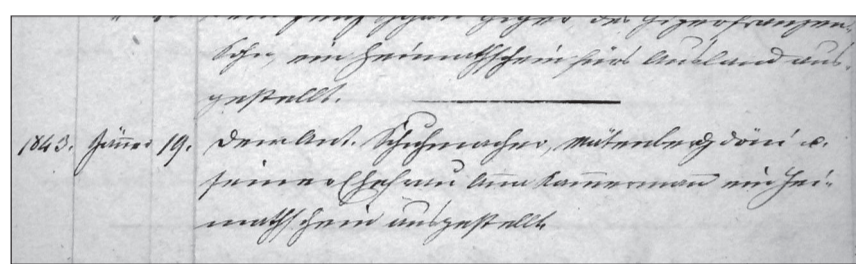 Sohn, ein Heimathschein fürs Ausland aus-
gestellt.
1843. Jäner 19. Dem Ant. Schuhmacher, Mütenberg döni u.
seiner Ehefrau Ana Kamerman ein Hei-
mathschein ausgestellt.